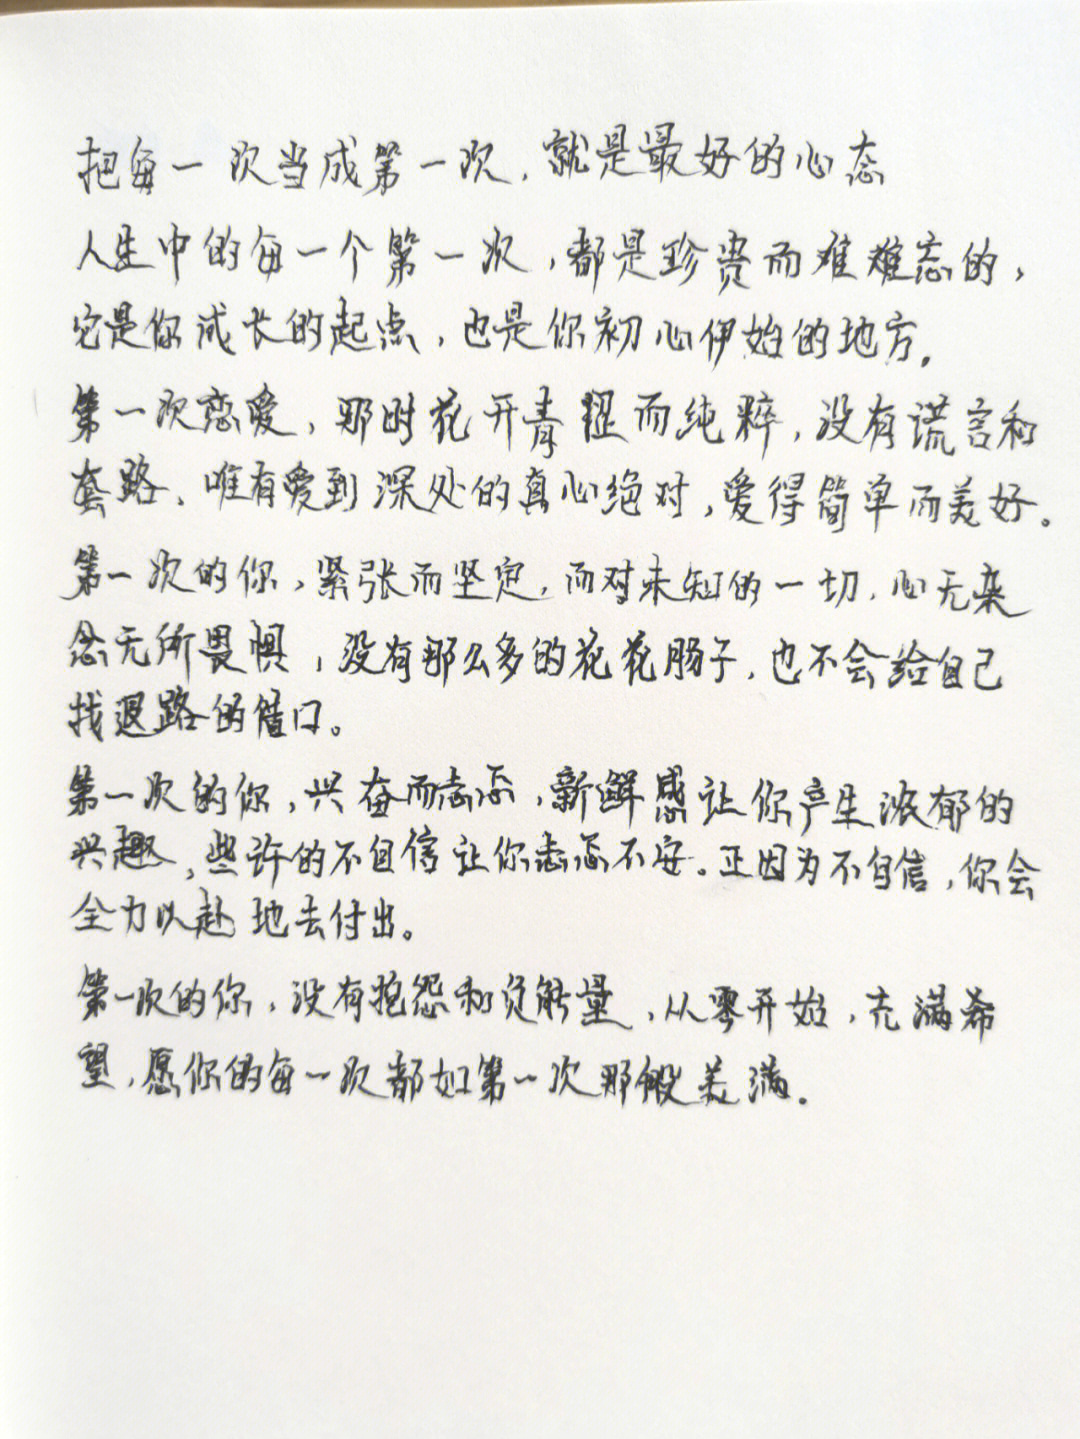 把每一次当成第一次，就是最好的心态
人生中的每一个第一次，都是珍贵而难难忘的，
它是你成长的起点，也是你初心伊始的地方。
第一次恋爱，那时花开青涩而纯粹，没有谎言和
套路、唯有爱到深处的真心绝对，爱得简单而美好。
第一次的你，紧张而坚定，而对未知的一切，心无杂
念无所畏惧，没有那么多的花花肠子，也不会给自己
找退路的借口。
第一次的你，兴奋而忐忑，新鲜感让你产生浓郁的
兴趣，些许的不自信让你忐忑不安。正因为不自信，你会
全力以赴地去付出。
第一次的你，没有抱怨和负能量，从零开始，充满希
望，愿你的每一次都如第一次那般美满。